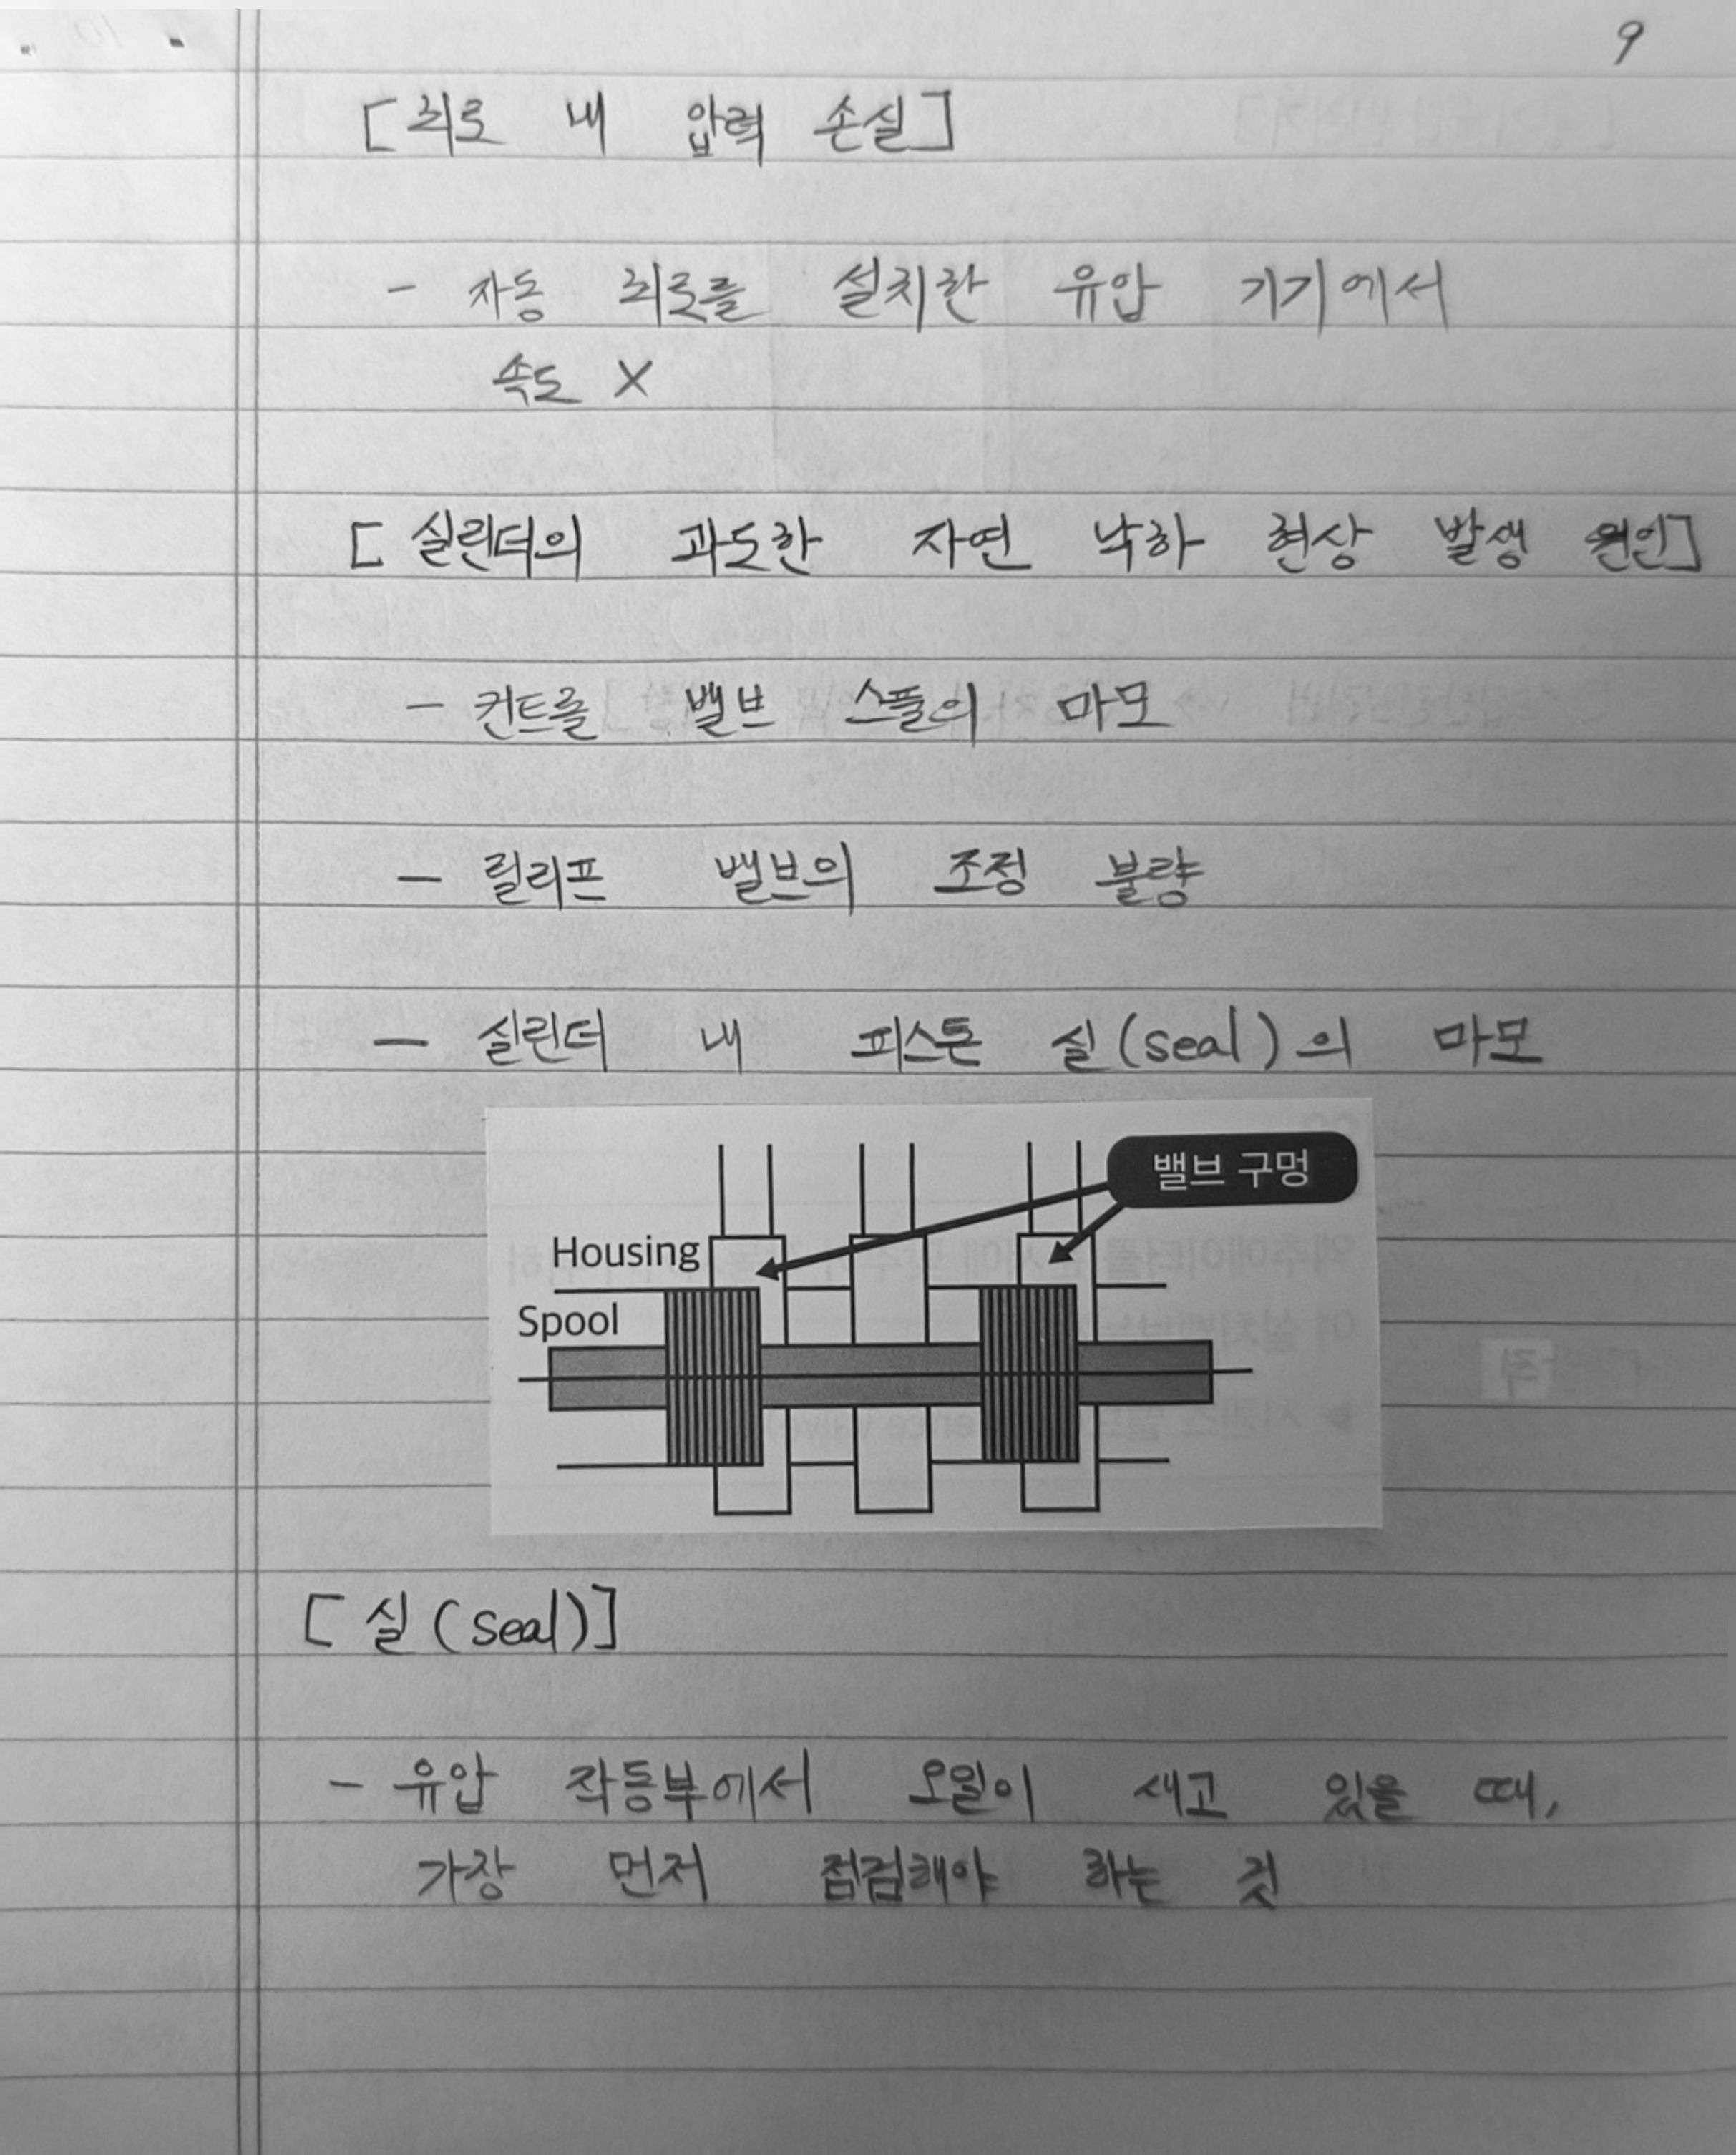 9
[회로 내 압력 손실]
- 자동 회로를 설치한 유압 기기에서
속도 X
[실린더의 과도한 자연 낙하 현상 발생 원인]
- 컨트롤 밸브 스풀의 마모
- 릴리프 밸브의 조정 불량
- 실린더 내 피스톤 실(seal)의 마모
밸브 구멍
Housing
Spool
[실(seal)]
- 유압 작동부에서 오일이 새고 있을 때,
가장 먼저 점검해야 하는 것